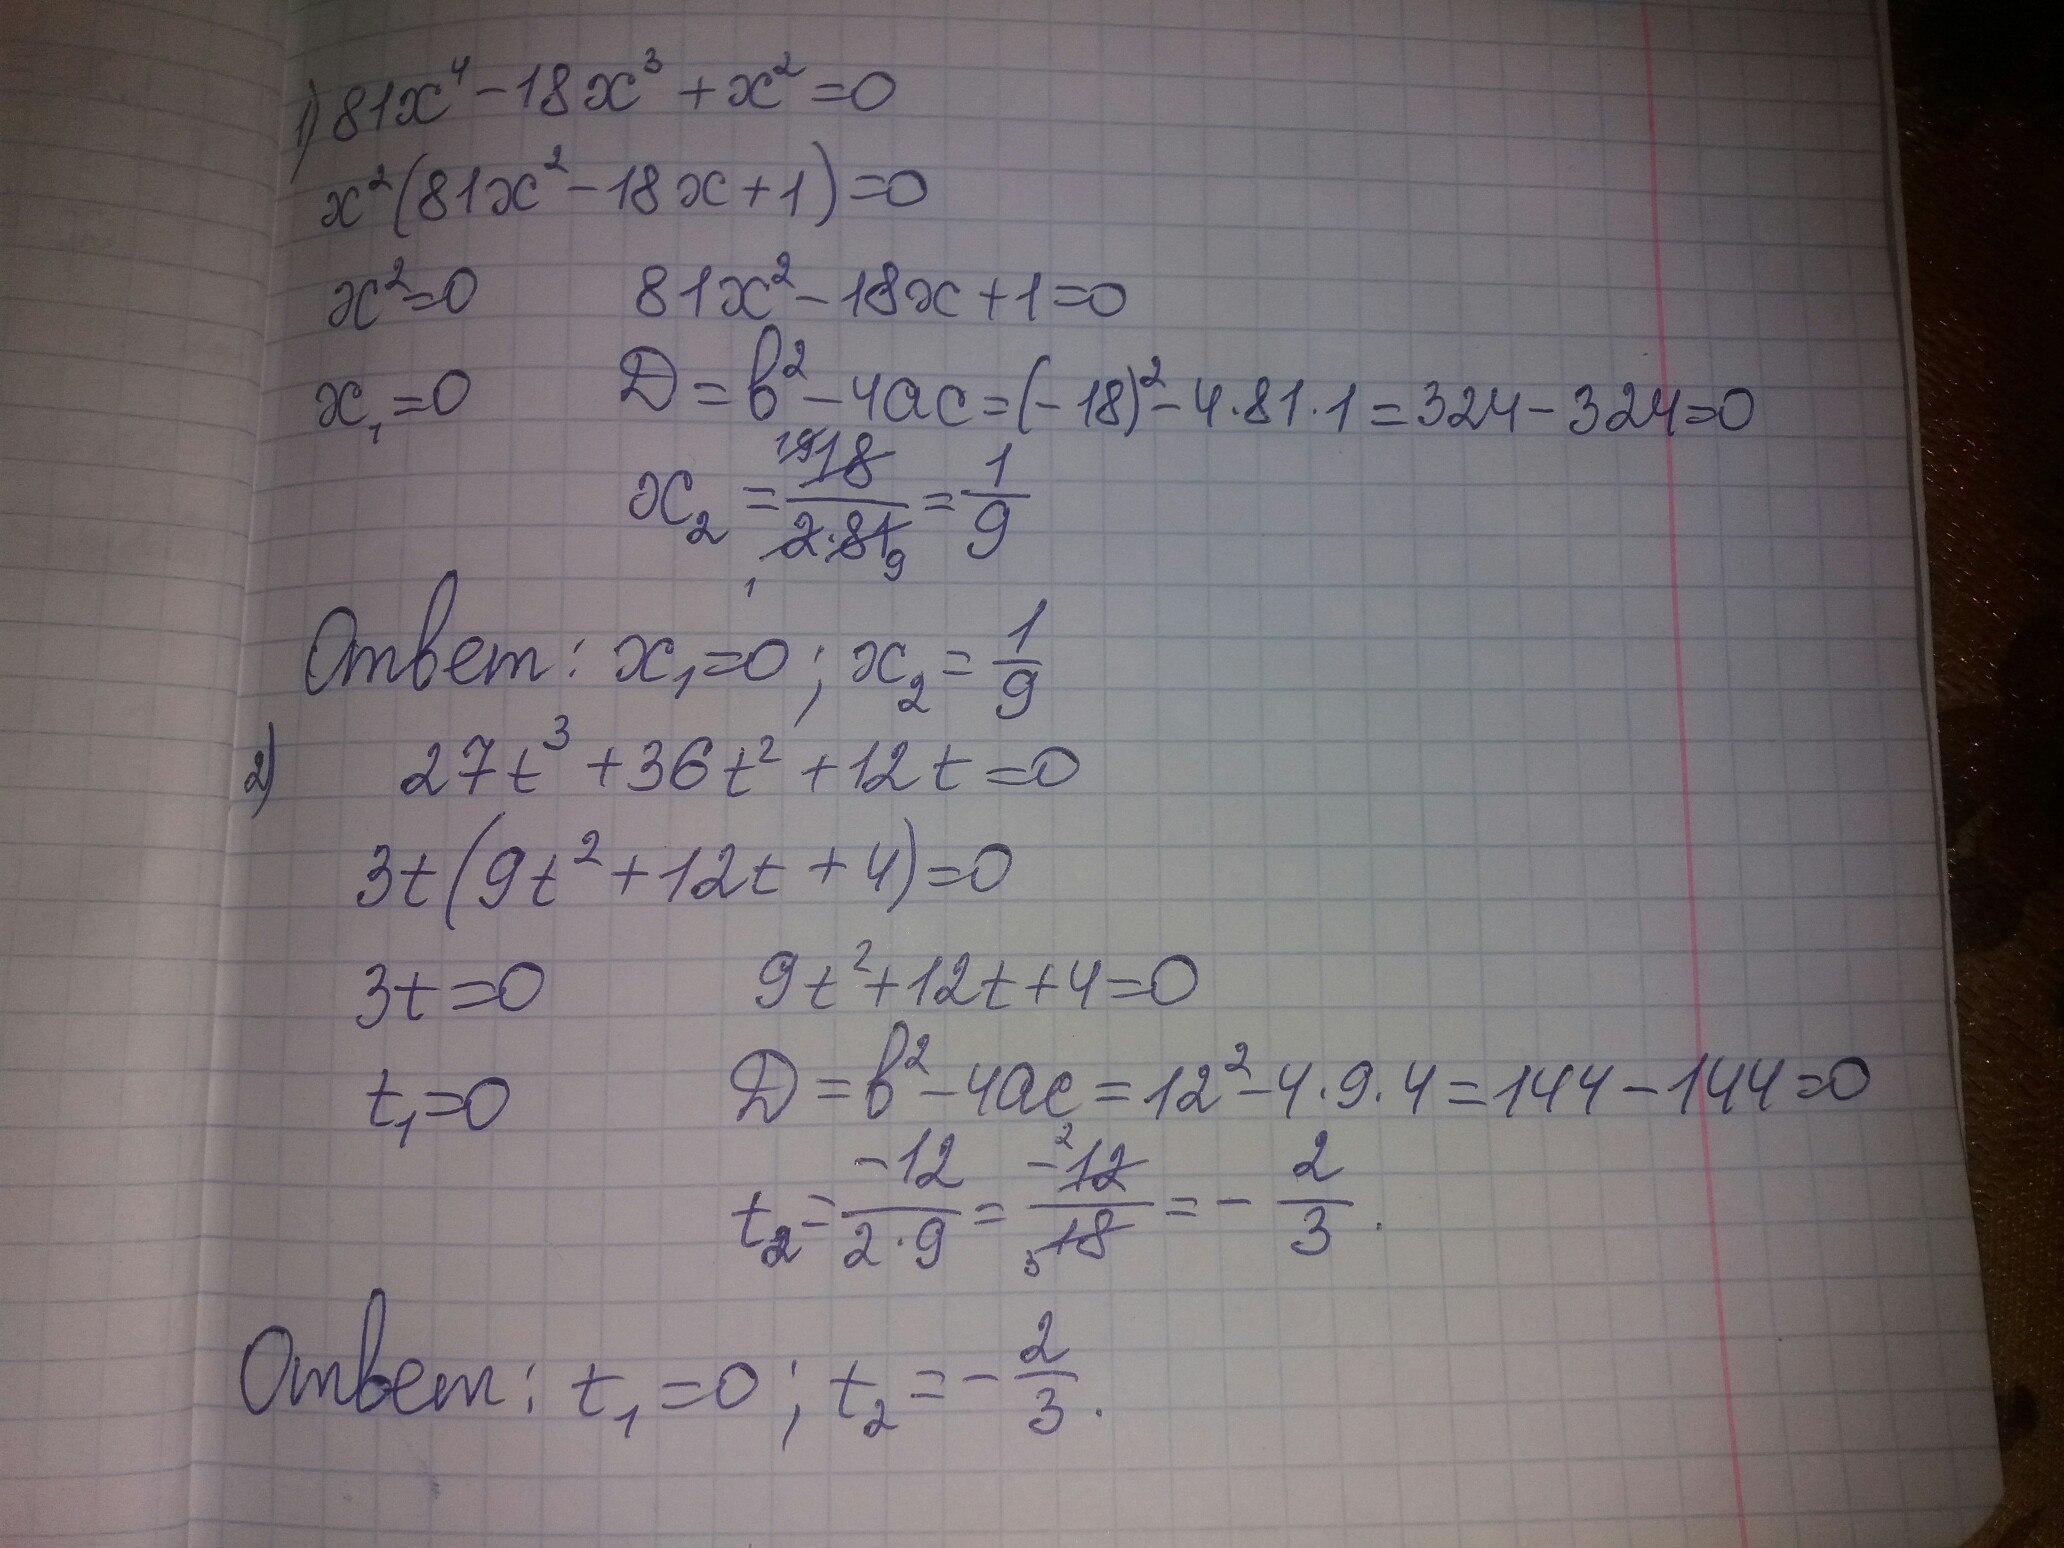 1) 81x⁴-18x³+x²=0
x²(81x²-18x+1)=0
x²=0 81x²-18x+1=0
x₁=0 D=b²-4ac=(-18)²-4·81·1=324-324=0
x₂=18/(2·81)=1/9
Ответ: x₁=0; x₂=1/9
2) 27t³+36t²+12t=0
3t(9t²+12t+4)=0
3t=0 9t²+12t+4=0
t₁=0 D=b²-4ac=12²-4·9·4=144-144=0
t₂=-12/(2·9)=-12/18=-2/3.
Ответ: t₁=0; t₂=-2/3.